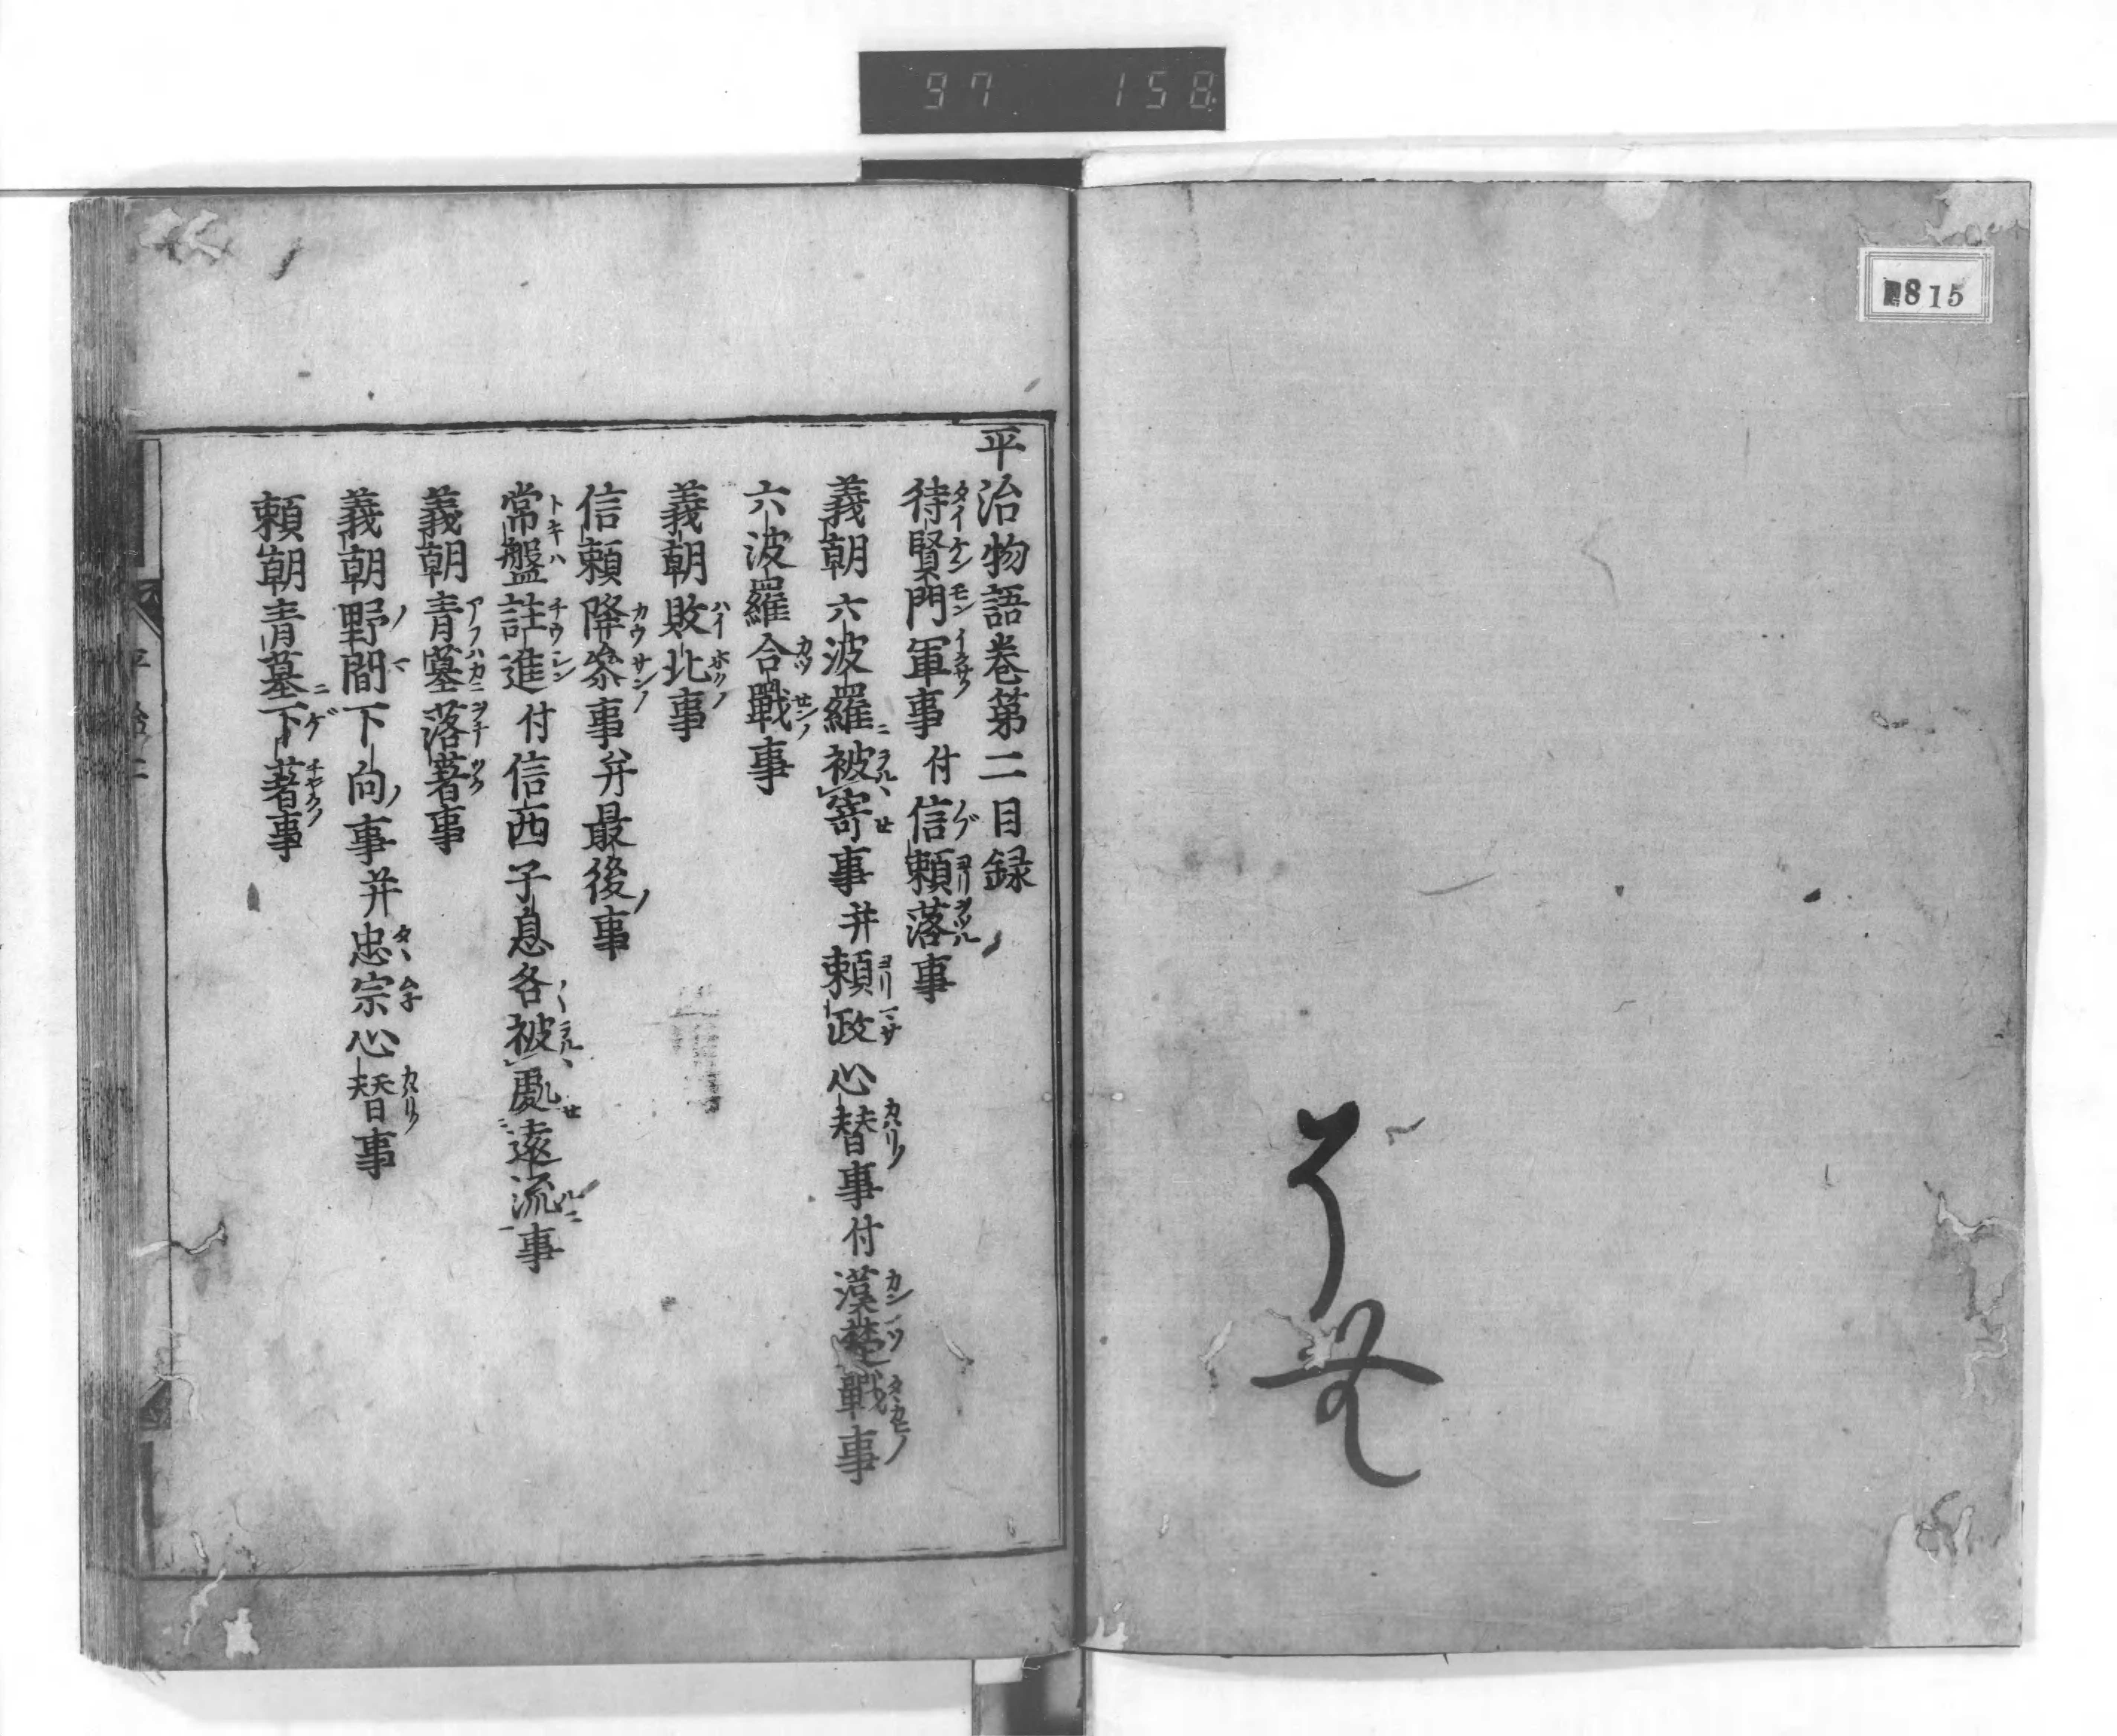 97 158
815
平治物語卷第二目録
待賢門軍事付信頼落事
義朝六波羅被寄事并頼政心替事付漢楚戰事
六波羅合戰事
義朝敗北事
信頼降参事并最後事
常盤註進付信西子息各被處遠流事
義朝青墓落著事
義朝野間下向事并忠宗心替事
頼朝青墓下著事